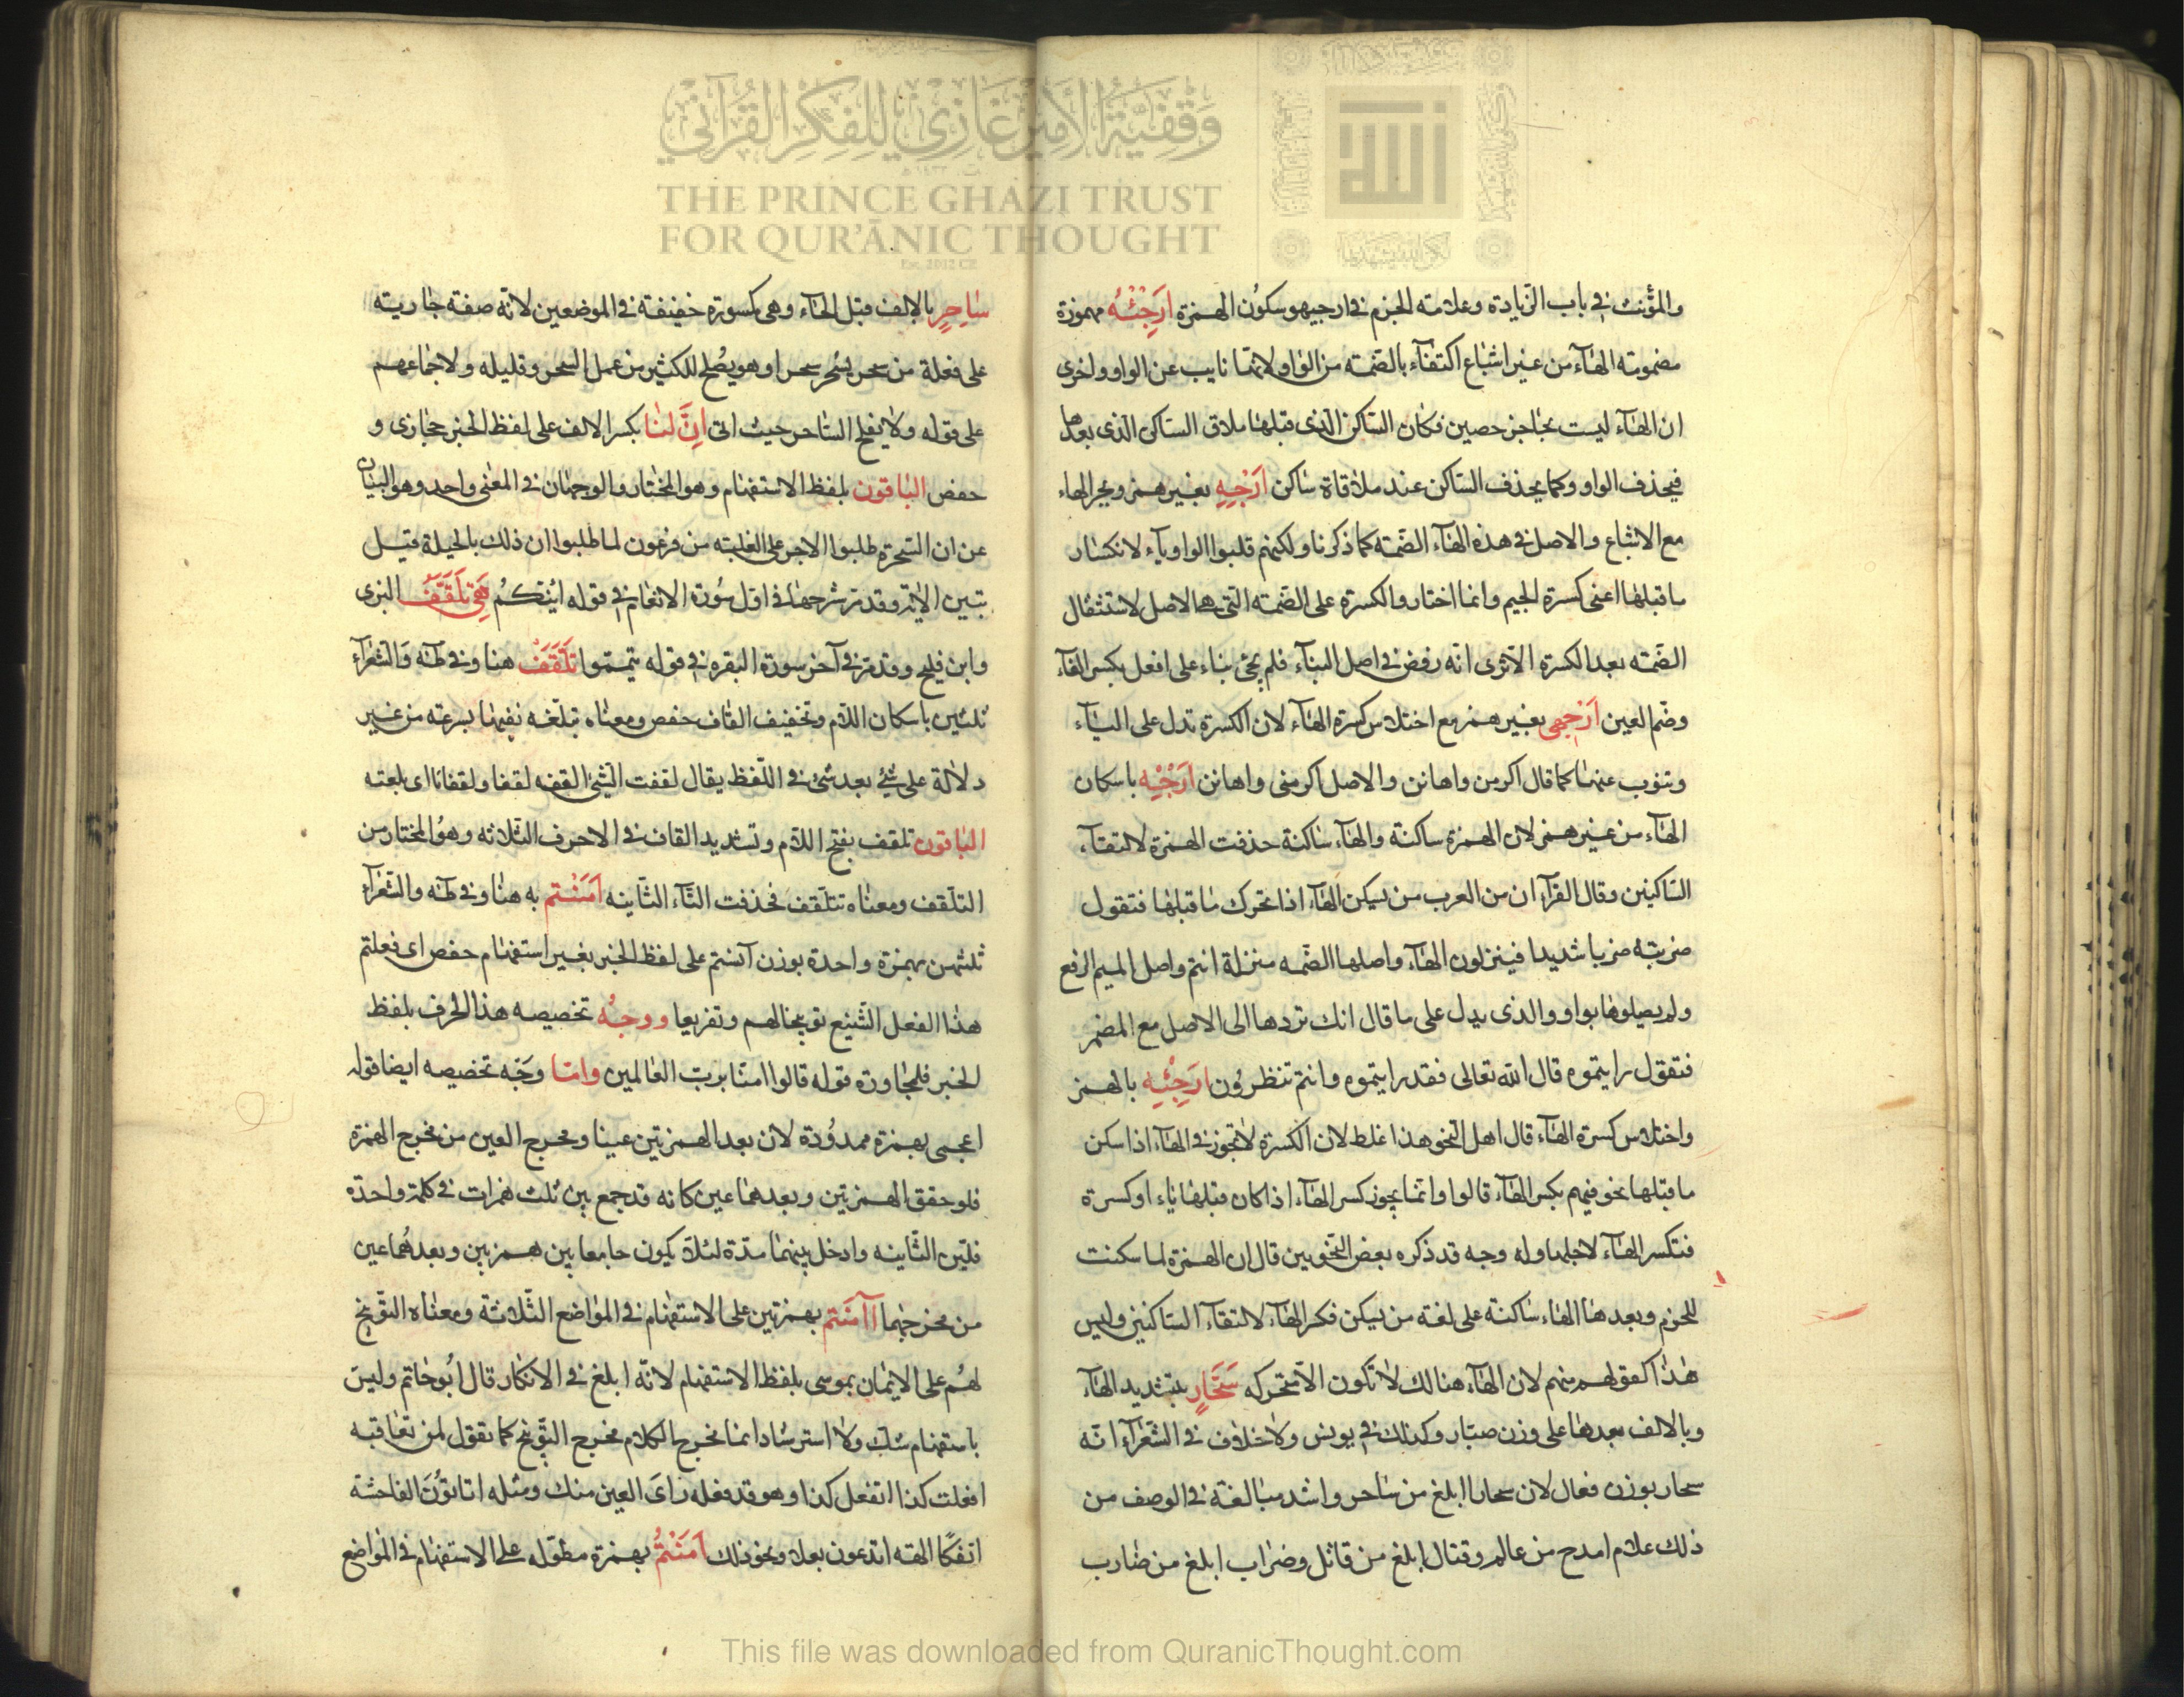 وقفية الأمير غازي للفكر القرآني
THE PRINCE GHAZI TRUST
FOR QUR'ĀNIC THOUGHT
Est. 2012 CE
والمؤنث في باب الزيادة وعلامته الجزم في ارجيهو سكون الهمزة ارجئه مهموزة
مضمومته الهآء من غير اشباع اكتفآء بالضمته من الواو ولانها نايب عن الواو واخرى
ان الهآء ليست بحاجز حصين فكان الساكن الذى قبلها ملاق الساكن الذى بعدها
فيحذف الواو وكما يحذف الساكن عند ملاقاة ساكن ارجه بغير همز ويجر الهاء
مع الاشباع والاصل في هذه الهآء الضمته كما ذكرنا ولكنهم قلبوا الواو يآء لانكسار
ما قبلها اعنى كسرة الجيم وانما اختاروا الكسرة على الضمته التى هى الاصل لاستثقال
الضمته بعد الكسرة الا ترى انه رفض في اصل البنآء فلم يجئ بناء على افعل بكسر الفآء
وضم العين ارجهى بغير همز مع اختلاس كسرة الهآء لان الكسرة تدل على اليآء
وتنوب عنها كما قال اكرمن واهانن والاصل اكرمنى واهانن ارجيه باسكان
الهآء من غير همز لان الهمزة ساكنة والهآء ساكنة حذفت الهمزة لالتقآء
الساكنين وقال الفرآء ان من العرب من يسكن الهآء اذا تحرك ما قبلها فتقول
ضربته ضربا شديدا فينزلون الهآء واصلها الضمه منزلة انتم واصل الميم الرفع
ولم يصلوها بواو والذى يدل على ما قال انك تردها الى الاصل مع المضمر
فتقول رايتموه قال الله تعالى فقد رايتموه وانتم تنظرون ارجئه بالهمز
واختلاس كسرة الهآء قال اهل النحو هذا غلط لان الكسرة لا تجوز في الهآء اذا سكن
ما قبلها نحو فيهم بكسر الهآء قالوا وانما يجوز كسر الهآء اذا كان قبلها ياء او كسرة
فتكسر الهآء لاجلها وله وجه قد ذكره بعض النحويين قال ان الهمزة لما سكنت
للجزم وبعدها الهاء ساكنة على لغته من يسكن فكسر الهآء لالتقآء الساكنين وليس
هذا كقولهم منهم لان الهآء هنالك لا تكون الا متحركه سحار بتشديد الهآء
وبالالف بعدها على وزن صبار وكذلك في يونس ولا خلاف في الشعرآء انه
سحار بوزن فعال لان سحارا ابلغ من ساحر واشد مبالغة في الوصف من
ذلك علام امدح من عالم وقتال ابلغ من قاتل وضراب ابلغ من ضارب
ساحر بالالف قبل الحآء وهى كسورة خفيفة في الموضعين لانه صفته جاريته
على فعلة من سحر يسحر سحرا وهو يصلح للكثير من عمل السحر وقليله ولاجماعهم
على قوله ولا يفلح الساحر حيث اتى ان لنا بكسر الالف على لفظ الخبر حجازى و
حفص الباقون بلفظ الاستفهام وهو المختار والوجهان في المعنى واحد وهو البيان
عن ان السحرة طلبوا الاجر على الغلبته من فرعون لما طلبوا ان ذلك بالحيلة قتيل
تبين الايتروقد مر شرحها في اول سورة الانعام في قوله ائينكم هى تلقف البزى
وابن فليح وقد مر في آخر سورة البقره في قوله تيمموا تلقف هنا وفي طه والشعرآء
ثلثهن باسكان اللام وتخفيف القاف حفص ومعناه تبلغه نفيها بسرعته من غير
دلالة على شئ بعد شئ في اللفظ يقال لقفت الشئ القفه لقفا ولقفانا اى بلعته
الباقون تلقف بفتح اللام وتشديد القاف في الاحرف الثلاثه وهو المختار من
التلقف ومعناه تتلقف فحذفت التآء الثانيه آمنتم به هنا وفي طه والشعرآ
ثلثهن بهمزة واحدة بوزن آمنتم على لفظ الخبر بغير استفهام حفص اى فعلتم
هذا الفعل الشنيع توبيخا لهم وتقريعا ووجه تخصيصه هذا الحرف بلفظ
الخبر فلمجاورة قوله قالوا امنا برب العالمين واما وجه تخصيصه ايضا قوله
اعجمى بهمزة ممدودة لان بعد الهمزتين عينا ومخرج العين من مخرج الهمزة
فلو حقق الهمزتين وبعدهما عين كانه قد جمع بين ثلث همزات في كلمة واحدة
فلين الثانيه وادخل بينهما مدة لئلا يكون جامعا بين همزتين وبعدهما عين
من مخرجهما اآمنتم بهمزتين على الاستفهام في المواضع الثلاثة ومعناه التوبيخ
لهم على الايمان بموسى بلفظ الاستفهام لانه ابلغ في الانكار قال ابو حاتم وليس
باستفهام شك ولا استرشاد انما مخرج الكلام مخرج التوبيخ كما تقول لمن تعاقبه
افعلت كذا اتفعل كذا وهو قد فعله راى العين منك ومثله اتاتون الفاحشة
ائفكا الهة اتدعون بعلا ونحو ذلك آمنتم بهمزة مطوله على الاستفهام في المواضع
This file was downloaded from QuranicThought.com